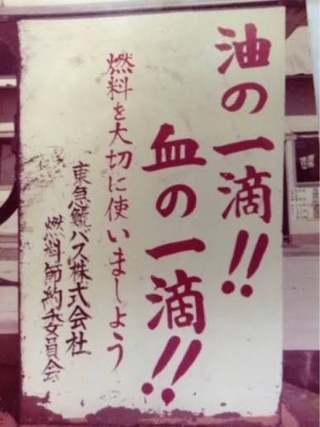 油の一滴!!
血の一滴!!
燃料を大切に使いましょう
東急鯱バス株式会社
燃料節約委員会